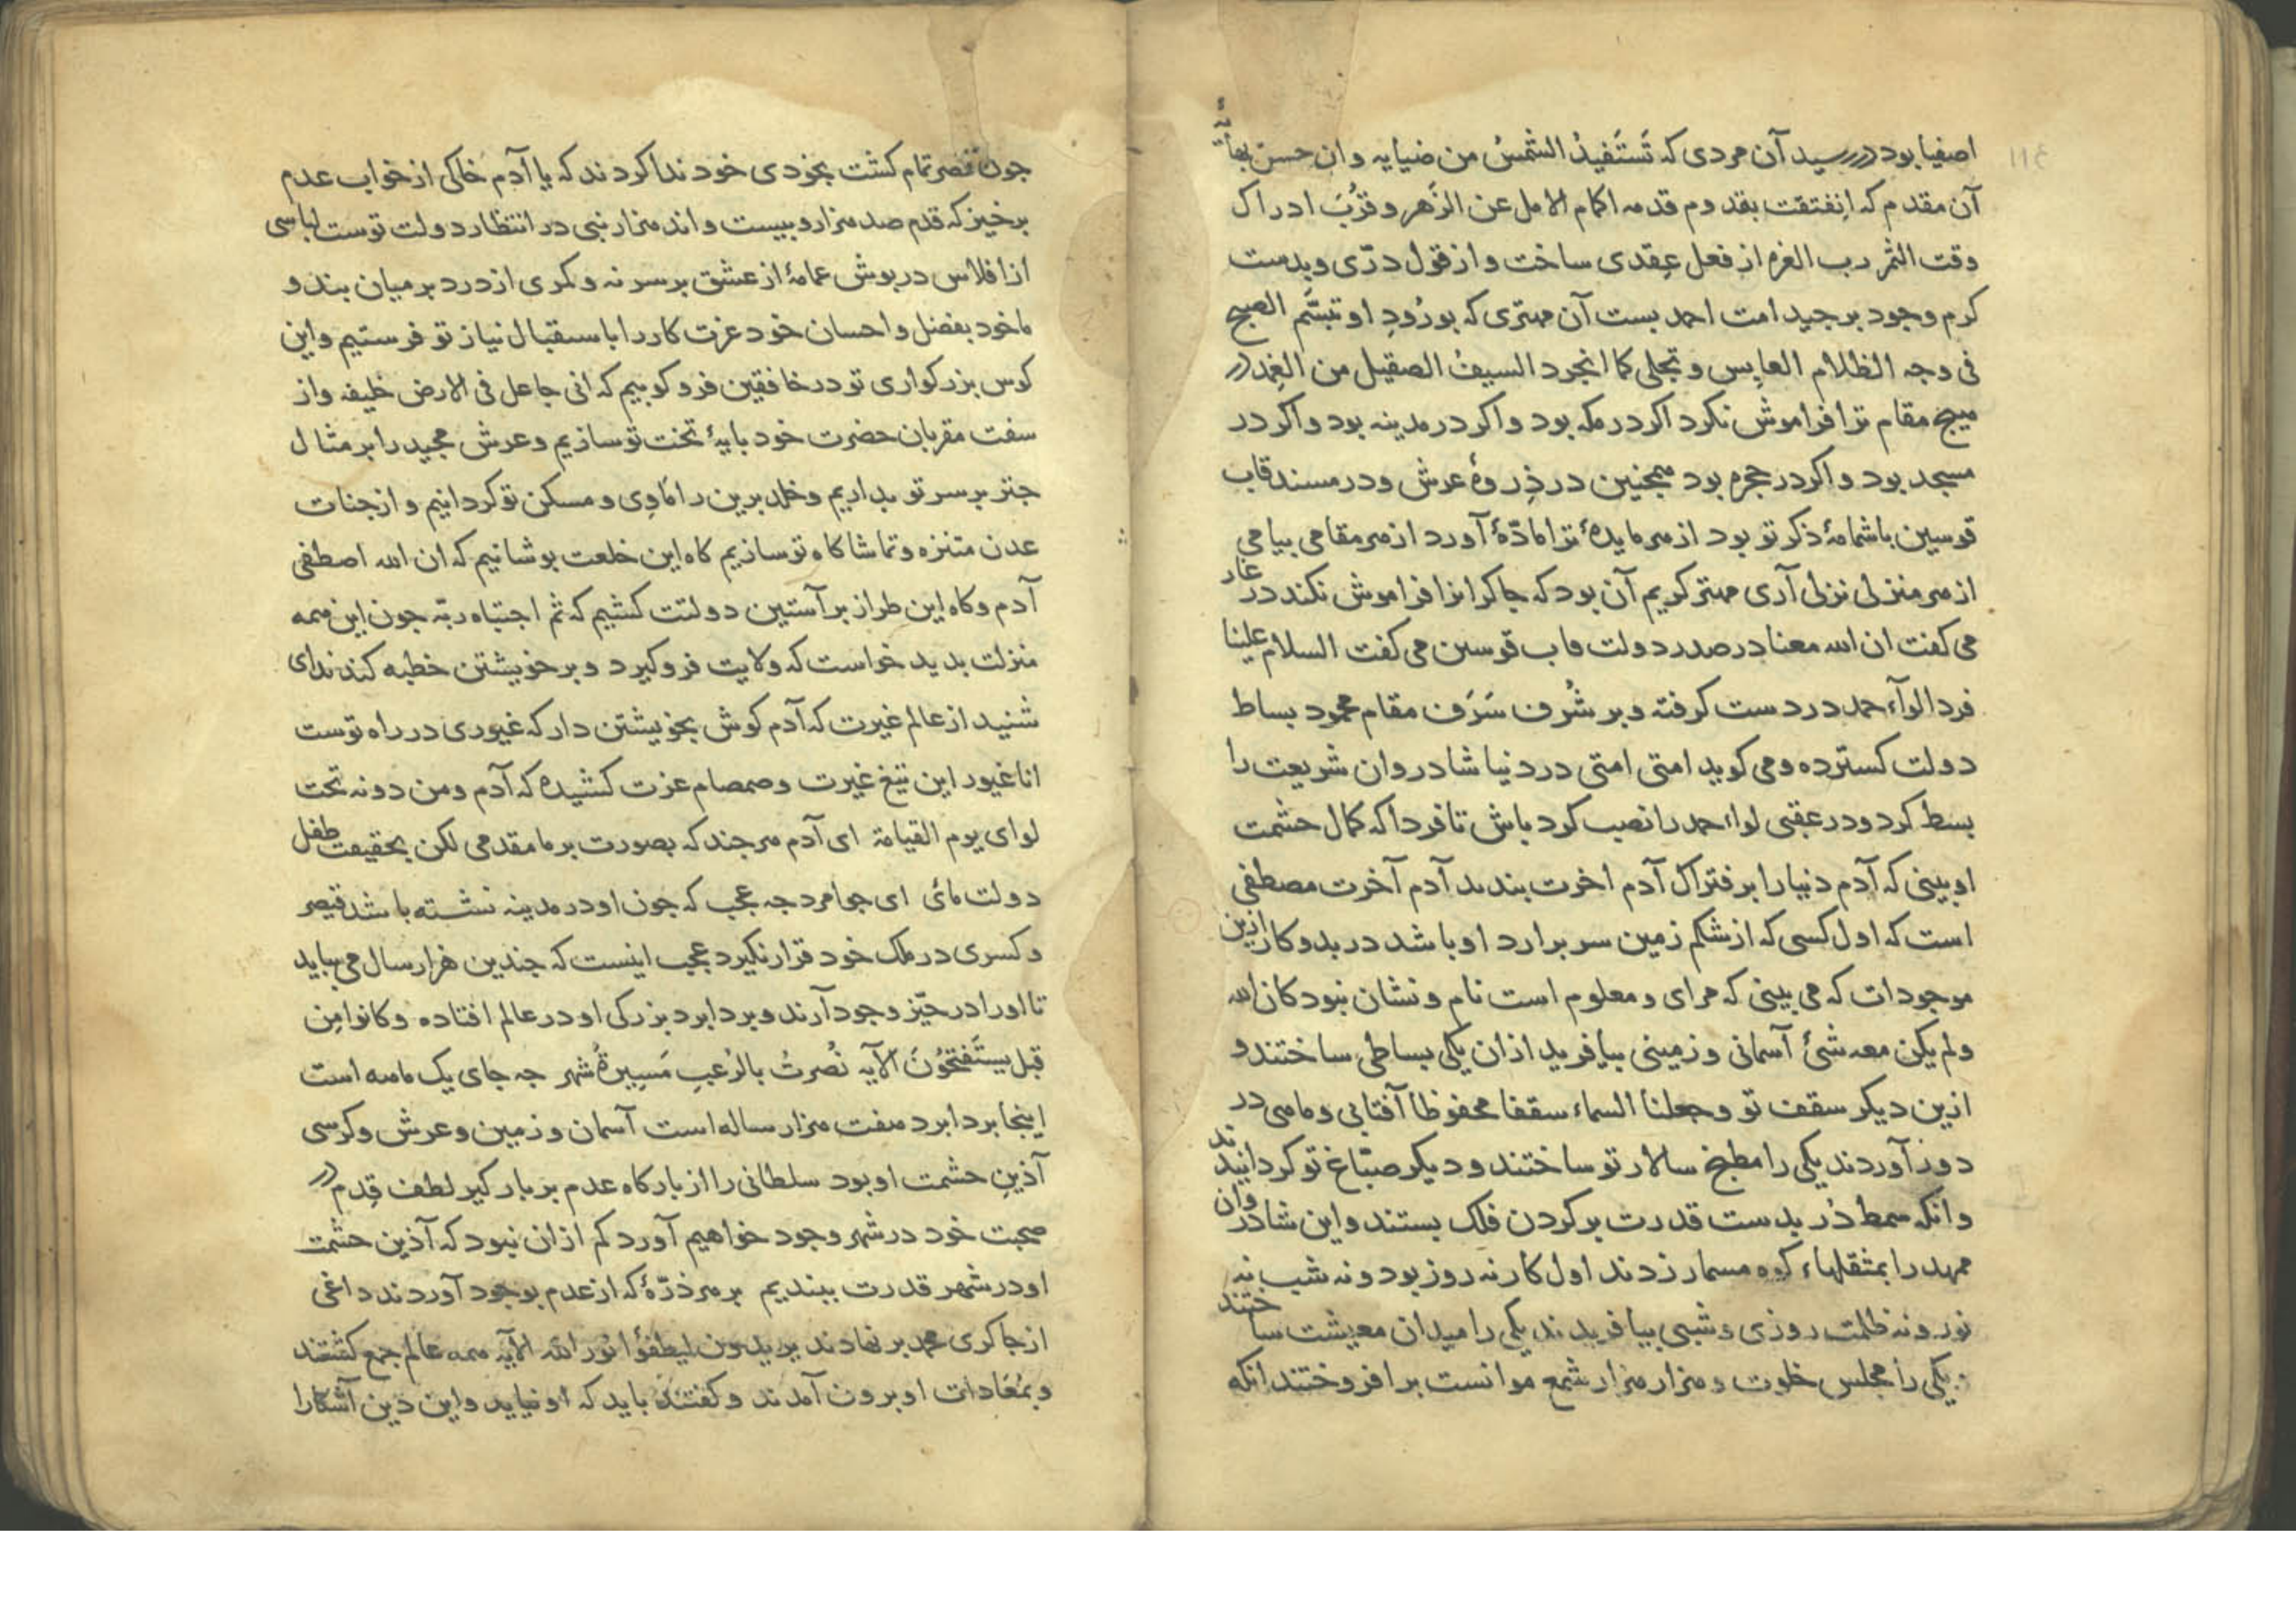 ١١٤
اصفیا بود در رسید آن مردی که تَستَفیدُ الشمسُ من ضیایه و ان حسن بهائه
آن مقدم که اِنفتقت بقدوم قدمه اکمام الامل عن الزَهر و قرُبَ ادراک
وقت الثمر رب العزه از فعل عِقدی ساخت و از قول درّی و بدست
کرم وجود بر جید امت احمد بست آن مهتری که بورُودِ او تبسَّم الصبح
فی وجه الظلام العابِس و تجلی کما انجرد السیفُ الصقیل من الغِمد در
میج مقام ترا فراموش نکرد اکر در مکه بود و اکر در مدینه بود و اکر در
مسجد بود و اکر در حجره بود همجنین در ذِروهٔ عرش و در مسند قاب
قوسین باشمامهٔ ذکر تو بود از مر مایدهٔ ترا مادّهٔ آورد از مر مقامی بیامی
از مر منزلی نزلی آری مهتر کریم آن بود که جاکرانرا فراموش نکند در غار
می کفت ان الله معنا در صدر دولت قاب قوسین می کفت السلام علینا
فردا لوآء حمد در دست کرفته و بر شُرف شَرَف مقام محمود بساط
دولت کسترده و می کوید امتی امتی در دنیا شادروان شریعت را
بسط کرد و در عقبی لواء حمد را نصب کرد باش تا فردا که کمال حشمت
او بینی که آدم دنیا را بر فتراک آدم اخرت بندند آدم آخرت مصطفی
است که اول کسی که از شکم زمین سر برارد او باشد در بدو کار ازین
موجودات که می بینی که مرای و معلوم است نام و نشان نبود کان الله
و لم یکن معه شئ آسمانی و زمینی بیافرید ازان یکی بساطی ساختند و
ازین دیکر سقف تو و جعلنا السماء سقفا محفوظا آفتابی و مامی در
دور آوردند یکی را مطبخ سالار تو ساختند و دیکر صبّاغ تو کردانیدند
و انکه سمط دُر بدست قدرت بر کردن فلک بستند و این شادروان
ممهد را بمثقلهاء کوه مسمار زدند اول کار نه روز بود و نه شب نه
نور و نه ظلمت روزی و شبی بیافریدند یکی را میدان معیشت ساختند
یکی را مجلس خلوت و مزار مزار شمع موانست بر افروختند انکه
جون قصر تمام کشت بخودی خود ندا کردند که یا آدم خاکی از خواب عدم
برخیز که قدم صد مزار و بیست و اند مزار نبی در انتظار دولت توست لباسی
از افلاس در بوش عمامهٔ از عشق بر سر نه و کمری از درد بر میان بند و
ما خود بفضل و احسان خود عزت کار را باستقبال نیاز تو فرستیم و این
کوس بزرکواری تو در خافقین فرو کوبیم که انی جاعل فی الارض خلیفه و از
سفت مقربان حضرت خود بایهٔ تخت تو سازیم و عرش مجید را بر مثال
جتر بر سر تو بداریم و خلد برین را مَاوِی و مسکن تو کردانیم و از جنات
عدن متنزه و تماشاکاه تو سازیم کاه این خلعت بوشانیم که ان الله اصطفی
آدم و کاه این طراز بر آستین دولتت کشیم که ثم اجتباه ربّه جون این ممه
منزلت بدید خواست که ولایت فرو کیرد و بر خویشتن خطبه کند ندای
شنید از عالم غیرت که آدم کوش بخویشتن دار که غیوری در راه توست
انا غیور این تیغ غیرت و صمصام عزت کشیده که آدم و من دونه تحت
لوای یوم القیامة ای آدم مرجند که بصورت بر ما مقدمی لکن بحقیقت طفل
دولت مائی ای جوامرد جه عجب که جون او در مدینه نشسته باشد قیصر
و کسری در ملک خود قرار نکیرد عجب اینست که جندین هزار سال می بباید
تا او را در حیّز وجود آرند و بردابرد بزرکی او در عالم افتاده و کانوا مِن
قبل یستَفتحُونَ الآیه نُصرتُ بالرُعبِ مَسِیرةُ شهر جه جای یک مامه است
اینجا بردابرد مفت مزار ساله است آسمان و زمین و عرش و کرسی
آذین حشمت او بود سلطانی را از بارکاه عدم بر بارکیر لطف قِدم در
صحبت خود در شهر وجود خواهیم آورد کم ازان نبود که آذین حشمت
او در شهر قدرت ببندیم بر مر ذرّهٔ که از عدم بوجود آوردند داغی
از جاکری محمد بر نهادند یریدون لیطفؤا نُور الله الآیه ممه عالم جمع کشتند
و بمُعَادات او برون آمدند و کفتند باید که او نیاید و این دین آشکارا